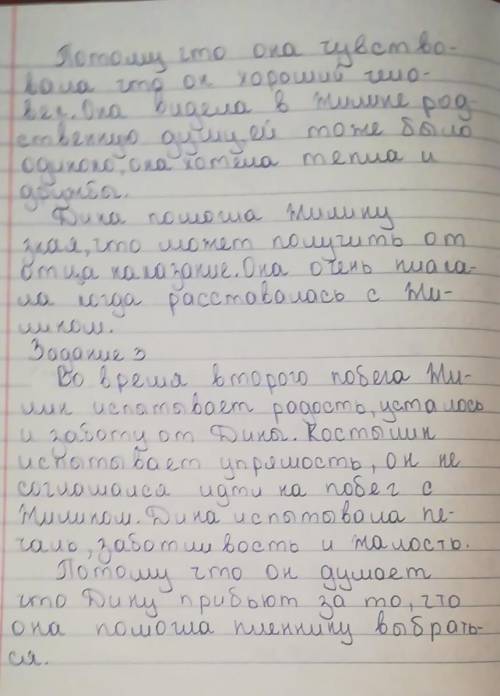 Потому что она чувство-
вала что он хороший чело-
век. Она видела в Жилине род-
ственную душу, ей тоже было
одиноко, она хотела тепла и
дружбы.
Дина помогла Жилину
зная, что может получить от
отца наказание. Она очень плака-
ла когда расставалась с Жи-
лином.
Задание 3
Во время второго побега Жи-
лин испытывает радость, усталось
и заботу от Дины. Костылин
испытывает упрямость, он не
соглашался идти на побег с
Жилином. Дина испытывала пе-
чаль, заботливость и жалость.
Потому что он думает
что Дину прибьют за то, что
она помогла пленнику выбрать-
ся.